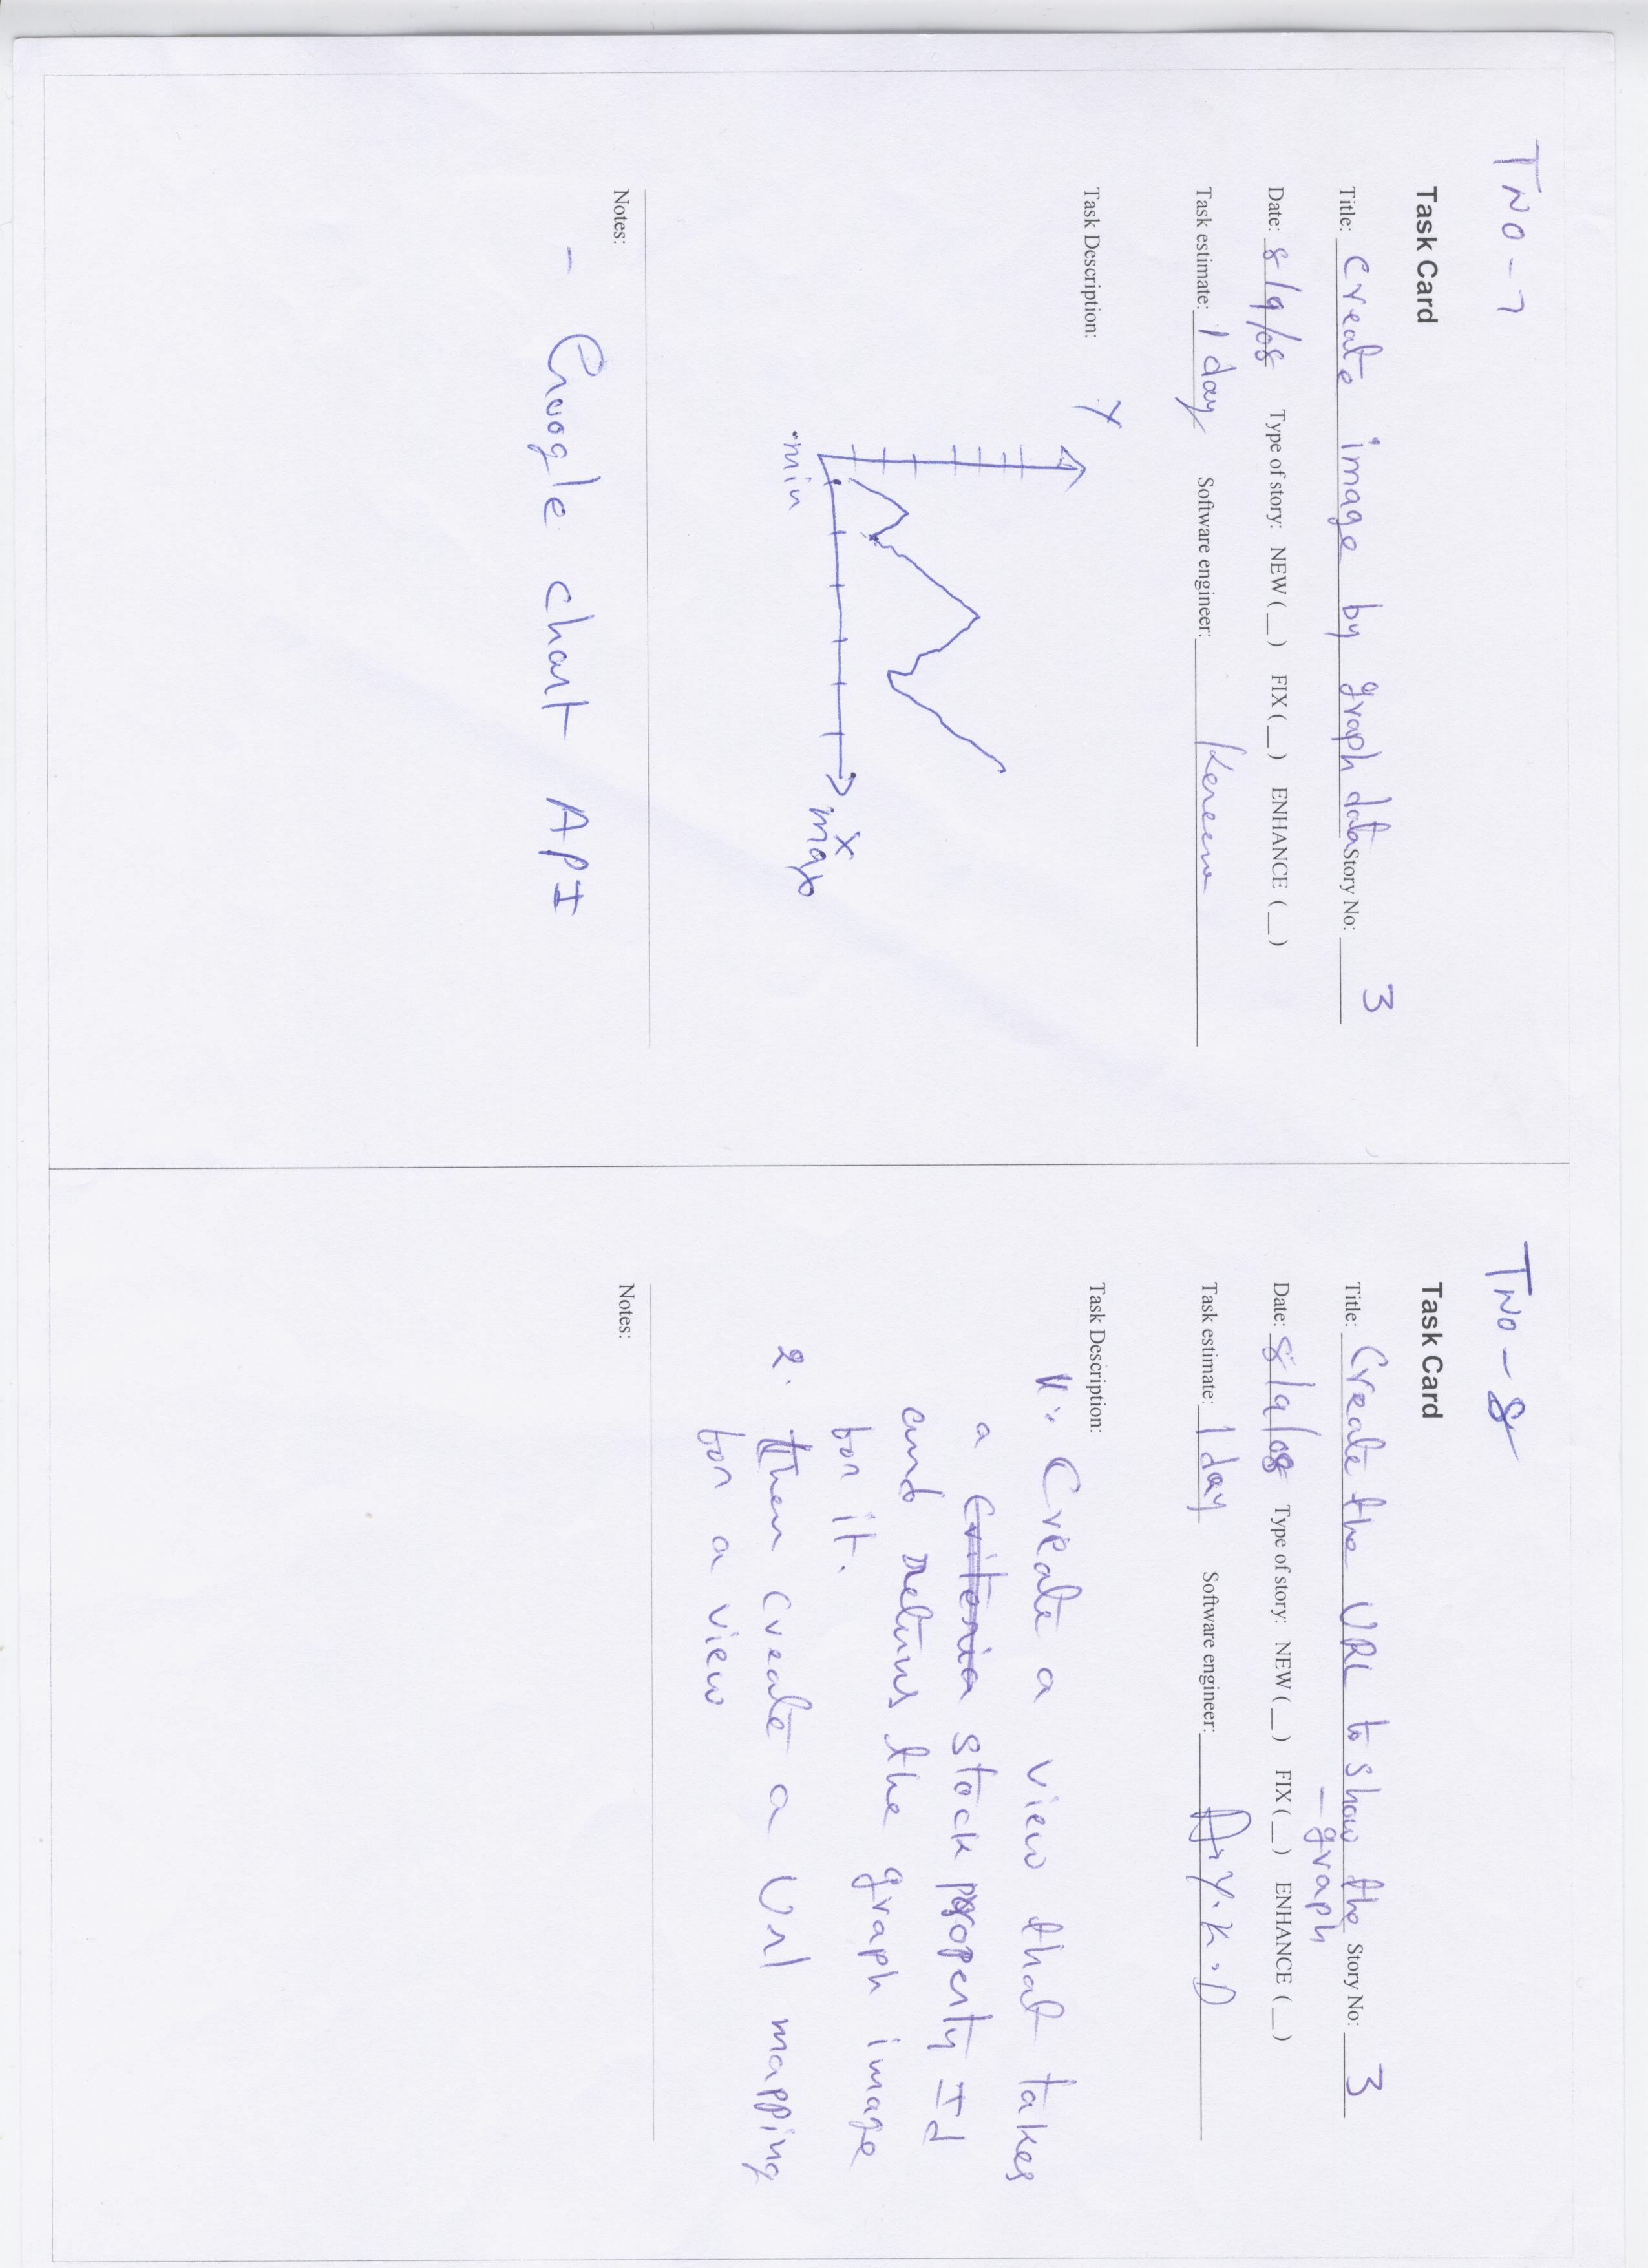 TNO - 7
Task Card
Title: Create image by graph data Story No: 3
Date: 8/9/08 Type of story: NEW (__) FIX (__) ENHANCE (__)
Task estimate: 1 day Software engineer:
Task Description:
Y
min
X
max
Notes:
- Google chart API
TNO - 8
Task Card
Title: Create the URL to show the Story No: 3
- graph
Date: 8/9/08 Type of story: NEW (__) FIX (__) ENHANCE (__)
Task estimate: 1 day Software engineer:
Task Description:
1. Create a view that takes
a Criteria stock property Id
and returns the graph image
for it.
2. then create a Url mapping
for a view
Notes: